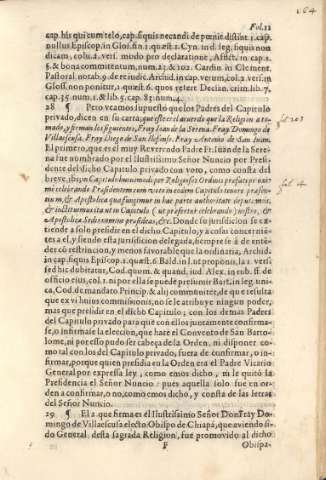 164
Fol. 11
cap. his qui cum telo, cap. si quis necandi de pœnit. distinc. 1. cap.
nullus Episcop. in Glos. fin. 1. quæst. 1. Cyn. in d. leg. si quis non
dicam, colu. 2. vers. modo pro declaratione, Afflict. in cap. 1.
§. & bona committentium, num. 23. & 102. Gardin. in Clement.
Pastoral. notab. 9. de re iudic. Archid. in cap. verum, col. 2. vers. in
Gloss. non ponitur, 1. quæst. 6. quos refert Decian. crim. lib. 7.
cap. 35. num. 1. & lib. 5. cap. 83. num. 4.
28 ¶ Pero veamos supuesto que los Padres del Capitulo
privado, dicen en su carta; que este es el acuerdo que la Religion a to-
mado, y firman los siguientes, Fray Ioan de la Serena. Fray Domingo de
Villaescusa. Fray Diego de San Isidro. Fray Antonio de San Iuan.
El primero, que es el muy Reverendo Padre Fr. Iuan de la Sere-
na fue nombrado por el Ilustrissimo Señor Nuncio por Presi-
dente del dicho Capitulo privado con voto, como consta del
breve, ibi;
mi celebrando Presidentem cum voto in eodem Capitulo tenore præsen-
tium, & Apostolica qua fungimur in hac parte authoritate deputamus,
& inductum ita ut in Capitulo (ut præfertur celebrando) nostro, &
Apostolica Sedis nomine præsideas, &c. Donde su jurisdiccion se es-
tiende a solo presidir en el dicho Capitulo, y a cosas concernien-
tes a el, y siendo esta jurisdicion delegada, siempre se à de enten-
der cõ restriccion, y menos favorable que la ordinaria, Archid.
in cap. si quis Episcop. 1. quæst. 6. Bald. in l. ut proponis, la 2. vers.
sed hic dubitatur, Cod. quom. & quand. iud. Alex. in rub. ff. de
officio eius, col. 1. ni por ella se puede presumir Bart. in leg. uni-
ca, Cod. de mandatis Princip. & alij communiter, de que resulta
que ex vi huius commissionis, no se le atribuye ningun poder,
mas que presidir en el dicho Capitulo; con los demas Padres
del Capitulo privado para que con ellos juntamente confirmas-
se, o infirmasse la eleccion, que hace el Convento de San Barto-
lome, ni por esso pudo ser cabeça de la Orden, ni disponer co-
mo tal con los del Capitulo privado, fuera de confirmar, o in-
firmar, porque quien presidia en la Orden era el Padre Vicario
General por expressa ley, como emos dicho, ni le quitò la
Presidencia el Señor Nuncio: pues aquella solo fue en or-
den a confirmar, o no, como emos dicho, y consta de las letras
del Señor Nuncio.
29 ¶ El 2. que firma es el Ilustrissimo Señor Don Fray Do-
mingo de Villaescusa electo Obispo de Chiapà, que aviendo si-
do General desta sagrada Religion, fue promovido al dicho
F
Obispa-